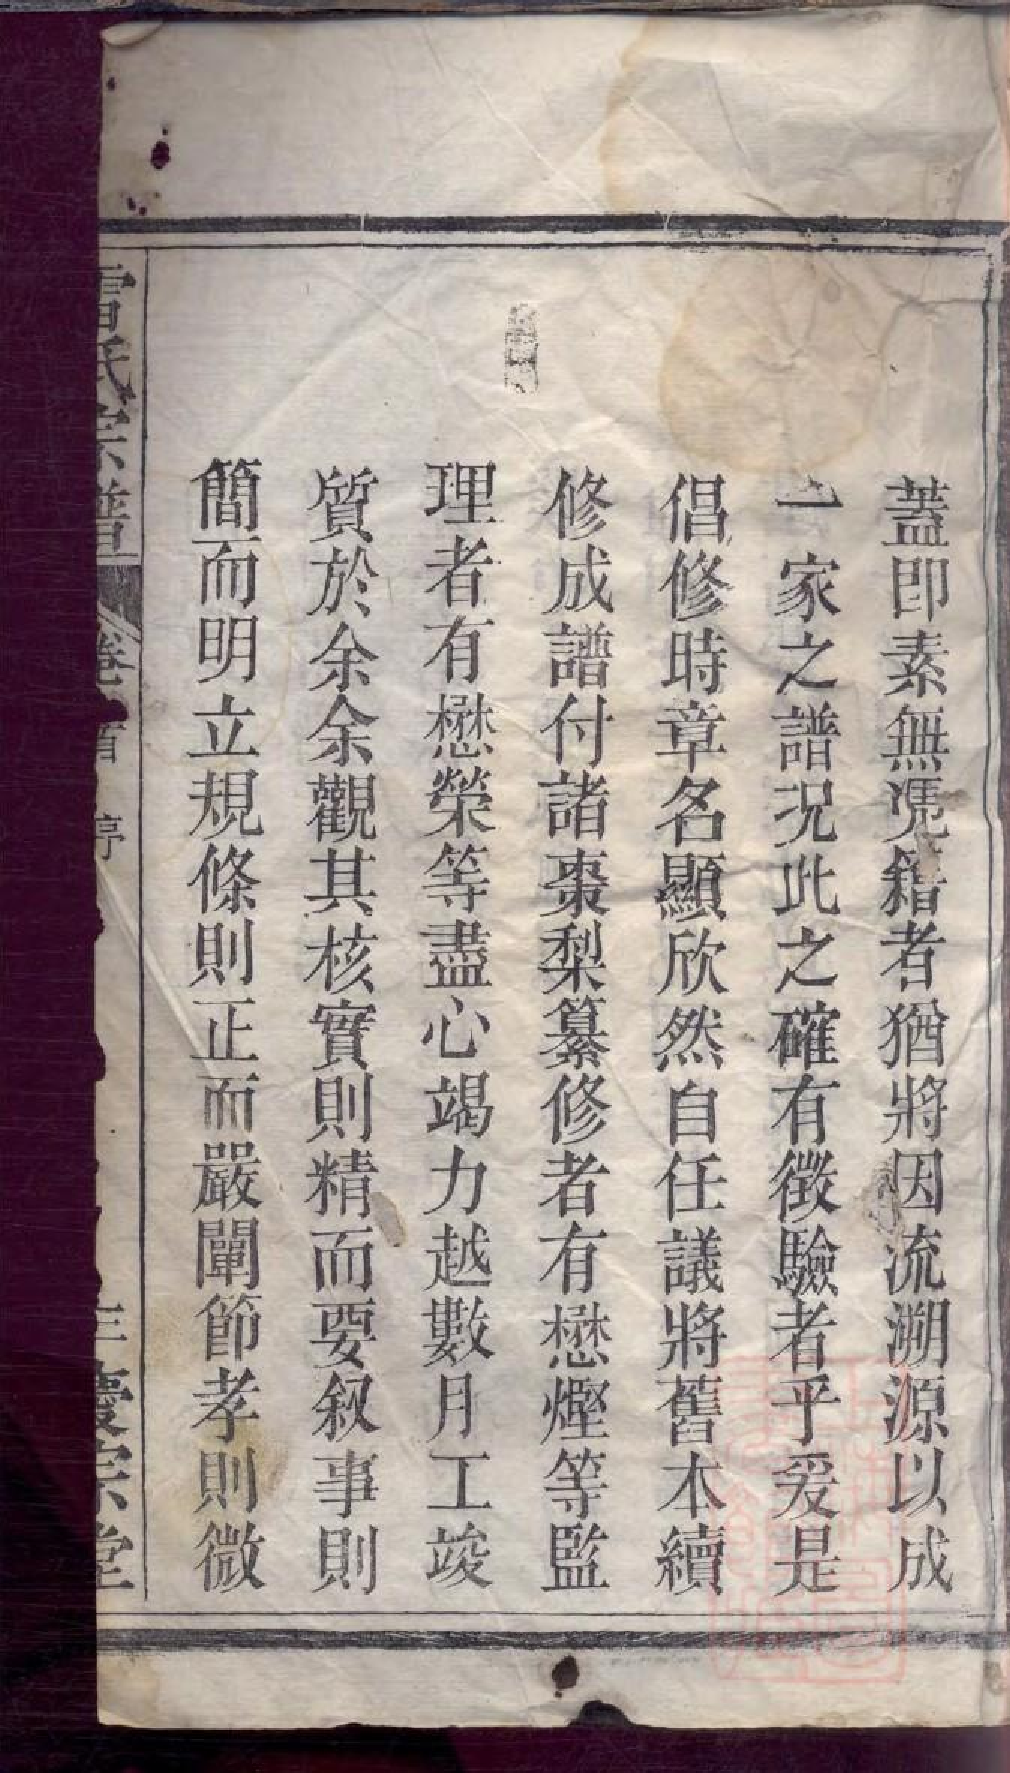 蓋即素無憑籍者猶將因流溯源以成
一家之譜况此之確有徴驗者乎爰是
倡修時章名顯欣然自任議將舊本續
修成譜付諸棗梨纂修者有懋熞等監
理者有懋榮等盡心竭力越數月工竣
質於余余觀其核實則精而要叙事則
簡而明立規條則正而嚴闡節孝則微
氏宗譜
卷首
序
三慶宗堂